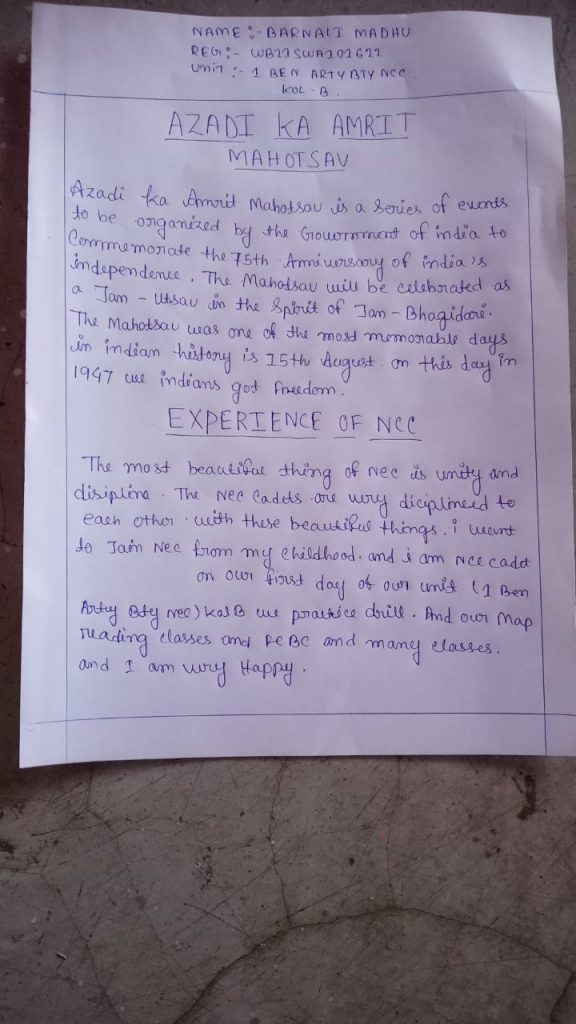 NAME :- BARNALI MADHU
REG :- WB21SWA101622
Unit :- 1 BEN ARTY BTY NCC
KOL - B.
AZADI KA AMRIT
MAHOTSAV
Azadi ka Amrit Mahotsav is a series of events
to be organized by the Government of india to
Commemorate the 75th Anniversary of india's
independence. The Mahotsav will be celebrated as
a Jan - utsav in the Spirit of Jan - Bhagidari.
The Mahotsav was one of the most memorable days
in indian history is 15th August. on this day in
1947 we indians got freedom.
EXPERIENCE OF NCC
The most beautiful thing of NCC is unity and
disipline. The NCC Cadets are very diciplined to
each other. with these beautiful things. i want
to Join NCC from my childhood. and i am NCC cadet
on our first day of our unit (1 Ben
Arty Bty NCC) Kol B we practice drill. And our Map
reading classes and FCBC and many classes.
and I am very Happy.